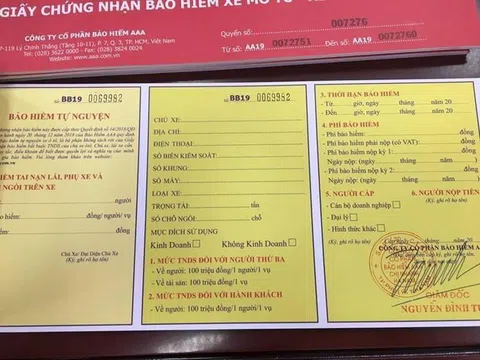 GIẤY CHỨNG NHẬN BẢO HIỂM XE MÔ TÔ
CÔNG TY CỔ PHẦN BẢO HIỂM AAA
P-119 Lý Chính Thắng (Tầng 10-11), P. 7, Q. 3, TP. HCM, Việt Nam
ĐT: (028) 3622 0000 - Fax: (028) 3824 0024
Website: www.aaa.com.vn
Quyển số: 007276
Từ số: AA19 0072751 đến: AA19 0072760
Số BB19 0069982
BẢO HIỂM TỰ NGUYỆN
HIỂM TAI NẠN LÁI, PHỤ XE VÀ
NGỒI TRÊN XE
người
hiểm: đồng/ người/ vụ
đồng
Chủ Xe/ Đại Diện Chủ Xe
(Ký, ghi rõ họ tên)
Số BB19 0069982
CHỦ XE:
ĐỊA CHỈ:
ĐIỆN THOẠI:
SỐ BIỂN KIỂM SOÁT:
SỐ KHUNG:
SỐ MÁY:
LOẠI XE:
TRỌNG TẢI: tấn
SỐ CHỖ NGỒI: chỗ
MỤC ĐÍCH SỬ DỤNG
Kinh Doanh Không Kinh Doanh
1. MỨC TNDS ĐỐI VỚI NGƯỜI THỨ BA
- Về người: 100 triệu đồng/1 người/1 vụ
- Về tài sản: 100 triệu đồng/1 vụ
2. MỨC TNDS ĐỐI VỚI HÀNH KHÁCH
- Về người: 100 triệu đồng/1 người/1 vụ
3. THỜI HẠN BẢO HIỂM
- Từ giờ, ngày tháng năm 20
- Đến giờ, ngày tháng năm 20
4. PHÍ BẢO HIỂM
- Phí bảo hiểm: đồng
- Phí bảo hiểm nộp (có VAT): đồng
- Phí bảo hiểm nộp kỳ 1: đồng
Ngày nộp: (ngày/tháng/năm)
- Phí bảo hiểm nộp kỳ 2: đồng
Ngày nộp: (ngày/tháng/năm)
5. NGƯỜI CẤP 6. NGƯỜI NỘP TIỀN
- Cán bộ doanh nghiệp (Ký, ghi rõ họ tên)
- Đại lý
- Hình thức khác
(Ký, ghi rõ họ tên)
Cấp ngày tháng năm 20
CÔNG TY CỔ PHẦN BẢO HIỂM
GIÁM ĐỐC
NGUYỄN ĐÌNH